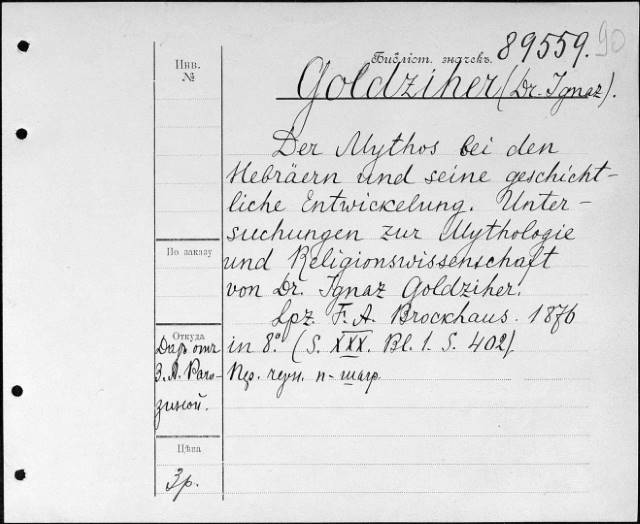 89559. 90
Инв.
№
Библіот. значекъ.
Goldziher (Dr. Ignaz).
Der Mythos bei den
Hebräern und seine geschicht-
liche Entwickelung. Unter-
suchungen zur Mythologie
und Religionswissenschaft
von Dr. Ignaz Goldziher.
Lpz. F. A. Brockhaus. 1876
in 8º. (S. XXX. Bl. 1. S. 402).
п-шагр
По заказу
Откуда
Даръ отъ
З. А. Раго-
зиной.
Цѣна
3р.